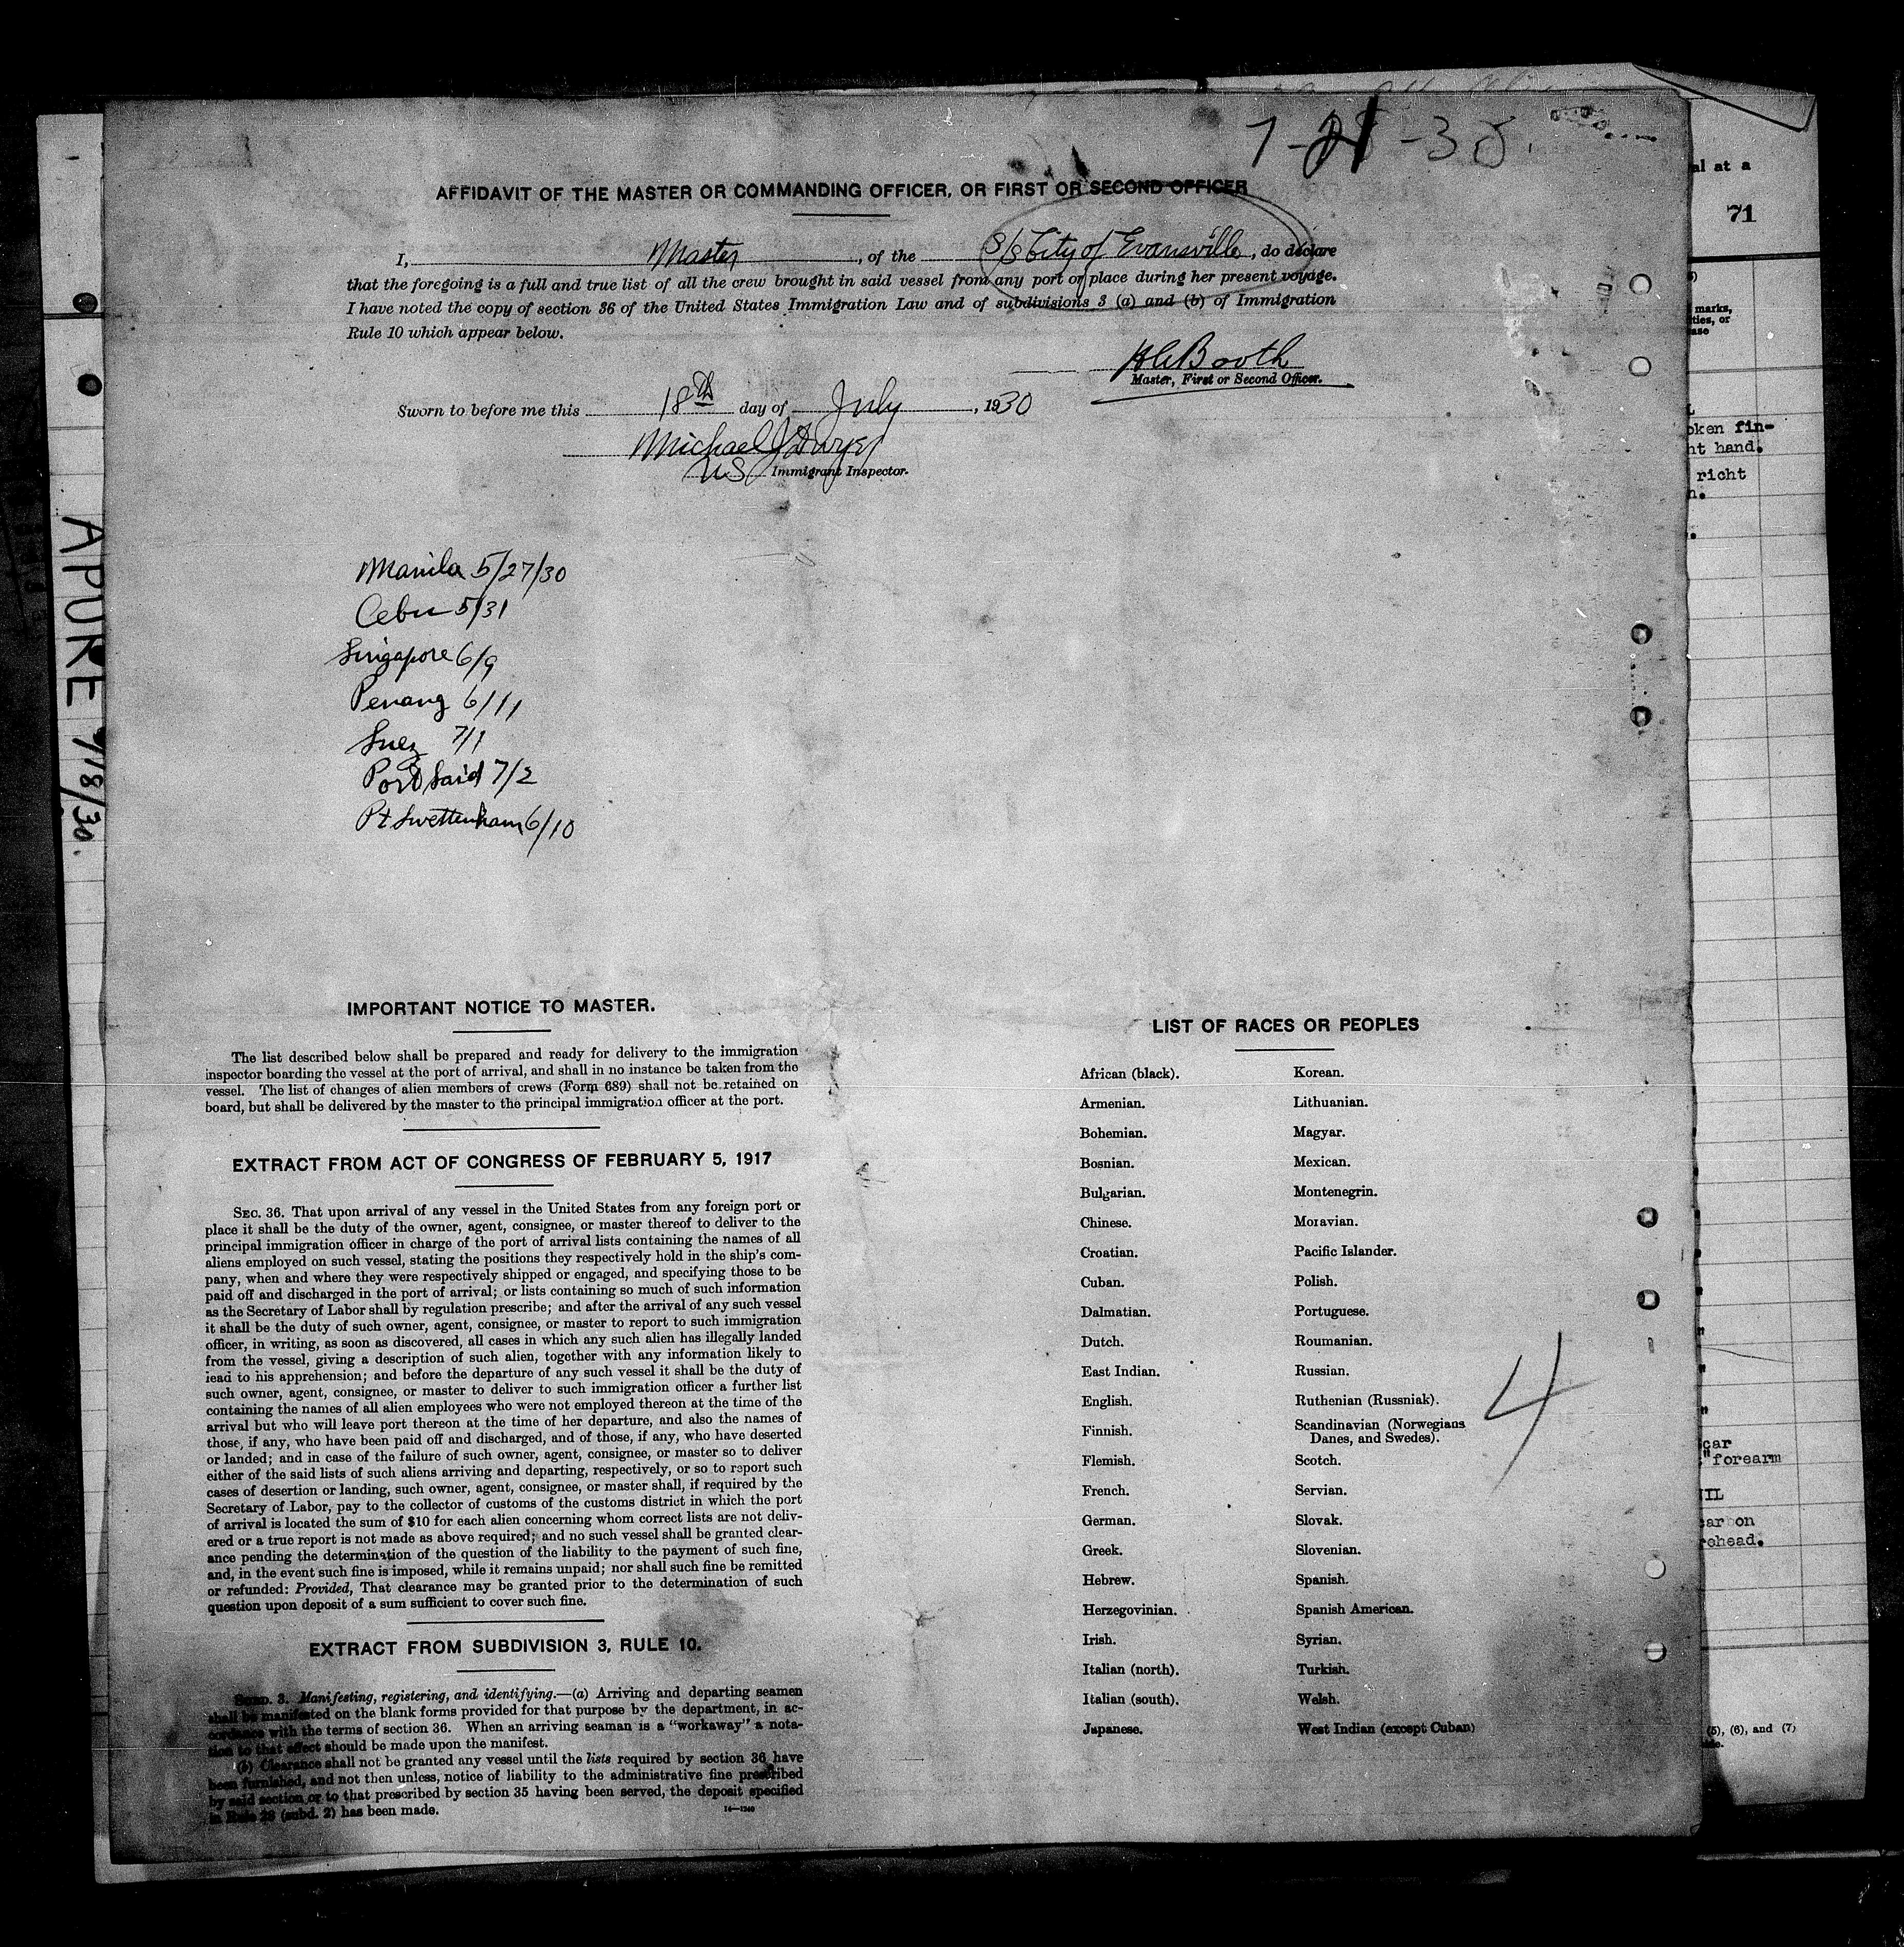 7-21-30.
AFFIDAVIT OF THE MASTER OR COMMANDING OFFICER, OR FIRST OR SECOND OFFICER
I, Master, of the S/S City of Evansville, do declare
that the foregoing is a full and true list of all the crew brought in said vessel from any port or place during her present voyage.
I have noted the copy of section 36 of the United States Immigration Law and of subdivisions 3 (a) and (b) of Immigration
Rule 10 which appear below.
Booth
Master, First or Second Officer.
Sworn to before me this 18th day of July, 1930
Michael J
US Immigrant Inspector.
Manila 5/27/30
Cebu 5/31
Singapore 6/9
Penang 6/11
Suez 7/1
Port Said 7/2
Pt Swettenham 6/10
IMPORTANT NOTICE TO MASTER.
The list described below shall be prepared and ready for delivery to the immigration
inspector boarding the vessel at the port of arrival, and shall in no instance be taken from the
vessel. The list of changes of alien members of crews (Form 689) shall not be retained on
board, but shall be delivered by the master to the principal immigration officer at the port.
EXTRACT FROM ACT OF CONGRESS OF FEBRUARY 5, 1917
SEC. 36. That upon arrival of any vessel in the United States from any foreign port or
place it shall be the duty of the owner, agent, consignee, or master thereof to deliver to the
principal immigration officer in charge of the port of arrival lists containing the names of all
aliens employed on such vessel, stating the positions they respectively hold in the ship's com-
pany, when and where they were respectively shipped or engaged, and specifying those to be
paid off and discharged in the port of arrival; or lists containing so much of such information
as the Secretary of Labor shall by regulation prescribe; and after the arrival of any such vessel
it shall be the duty of such owner, agent, consignee, or master to report to such immigration
officer, in writing, as soon as discovered, all cases in which any such alien has illegally landed
from the vessel, giving a description of such alien, together with any information likely to
lead to his apprehension; and before the departure of any such vessel it shall be the duty of
such owner, agent, consignee, or master to deliver to such immigration officer a further list
containing the names of all alien employees who were not employed thereon at the time of the
arrival but who will leave port thereon at the time of her departure, and also the names of
those, if any, who have been paid off and discharged, and of those, if any, who have deserted
or landed; and in case of the failure of such owner, agent, consignee, or master so to deliver
either of the said lists of such aliens arriving and departing, respectively, or so to report such
cases of desertion or landing, such owner, agent, consignee, or master shall, if required by the
Secretary of Labor, pay to the collector of customs of the customs district in which the port
of arrival is located the sum of $10 for each alien concerning whom correct lists are not deliv-
ered or a true report is not made as above required; and no such vessel shall be granted clear-
ance pending the determination of the question of the liability to the payment of such fine,
and, in the event such fine is imposed, while it remains unpaid; nor shall such fine be remitted
or refunded: Provided, That clearance may be granted prior to the determination of such
question upon deposit of a sum sufficient to cover such fine.
EXTRACT FROM SUBDIVISION 3, RULE 10.
SUBD. 3. Manifesting, registering, and identifying.—(a) Arriving and departing seamen
shall be manifested on the blank forms provided for that purpose by the department, in ac-
cordance with the terms of section 36. When an arriving seaman is a "workaway" a nota-
tion to that effect should be made upon the manifest.
(b) Clearance shall not be granted any vessel until the lists required by section 36 have
been furnished, and not then unless, notice of liability to the administrative fine prescribed
by said section or to that prescribed by section 35 having been served, the deposit specified
in Rule 28 (subd. 2) has been made.
14—1240
LIST OF RACES OR PEOPLES
African (black). Korean.
Armenian. Lithuanian.
Bohemian. Magyar.
Bosnian. Mexican.
Bulgarian. Montenegrin.
Chinese. Moravian.
Croatian. Pacific Islander.
Cuban. Polish.
Dalmatian. Portuguese.
Dutch. Roumanian.
East Indian. Russian.
English. Ruthenian (Russniak).
Finnish. Scandinavian (Norwegians
Danes, and Swedes).
Flemish. Scotch.
French. Servian.
German. Slovak.
Greek. Slovenian.
Hebrew. Spanish.
Herzegovinian. Spanish American.
Irish. Syrian.
Italian (north). Turkish.
Italian (south). Welsh.
Japanese. West Indian (except Cuban)
4
APURE 7/18/30.
al at a
71
marks,
ties, or
ase
oken fin-
ht hand.
richt
n.
car
"forearm
NIL
car on
rehead.
(5), (6), and (7)